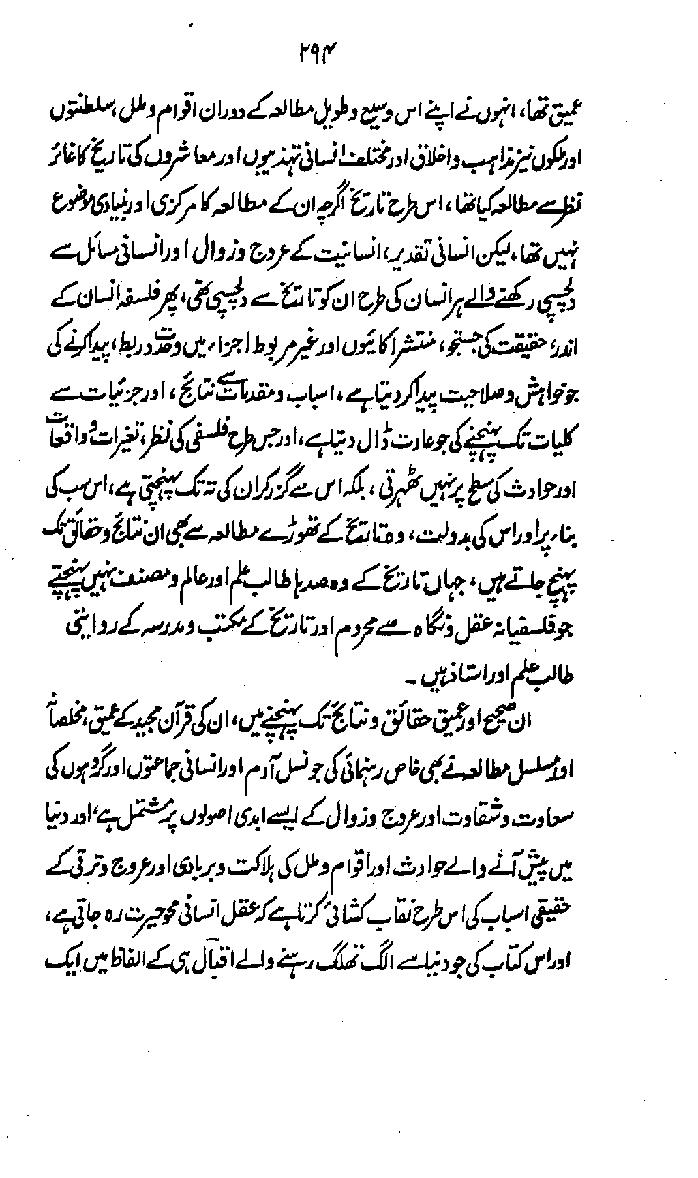 ۲۹۴
عمیق تھا، انہوں نے اپنے اس وسیع و طویل مطالعہ کے دوران اقوام و ملل، سلطنتوں
اور ملکوں نیز مذاہب و اخلاق اور مختلف انسانی تہذیبوں اور معاشروں کی تاریخ کا غائر
نظر سے مطالعہ کیا تھا، اس طرح تاریخ اگرچہ ان کے مطالعہ کا مرکزی اور بنیادی موضوع
نہیں تھا، لیکن انسانی تقدیر، انسانیت کے عروج و زوال اور انسانی مسائل سے
دلچسپی رکھنے والے ہر انسان کی طرح ان کو تاریخ سے دلچسپی تھی، پھر فلسفہ انسان کے
اندر، حقیقت کی جستجو، منتشر اکائیوں اور غیر مربوط اجزاء میں وحدت و ربط، پیدا کرنے کی
جو خواہش و صلاحیت پیدا کر دیتا ہے، اسباب و مقدمات سے نتائج، اور جزئیات سے
کلیات تک پہنچنے کی جو عادت ڈال دیتا ہے، اور جس طرح فلسفی کی نظر، تغیرات و واقعات
اور حوادث کی سطح پر نہیں ٹھہرتی، بلکہ اس سے گزر کر ان کی تہ تک پہنچتی ہے، اس سب کی
بناء پر اور اس کی بدولت، وہ تاریخ کے تھوڑے مطالعہ سے بھی ان نتائج و حقائق تک
پہنچ جاتے ہیں، جہاں تاریخ کے وہ صدہا طالب علم اور عالم و مصنف نہیں پہنچتے
جو فلسفیانہ عقل و نگاہ سے محروم اور تاریخ کے مکتب و مدرسہ کے روایتی
طالب علم اور استاذ ہیں۔
ان صحیح اور عمیق حقائق و نتائج تک پہنچنے میں، ان کی قرآن مجید کے عمیق، مخلصانہ
اور مسلسل مطالعہ نے بھی خاص رہنمائی کی جو نسل آدم اور انسانی جماعتوں اور گروہوں کی
سعادت و شقاوت اور عروج و زوال کے ایسے ابدی اصولوں پر مشتمل ہے، اور دنیا
میں پیش آنے والے حوادث اور اقوام و ملل کی ہلاکت و بربادی اور عروج و ترقی کے
حقیقی اسباب کی اس طرح نقاب کشائی کرتا ہے کہ عقل انسانی محو حیرت رہ جاتی ہے،
اور اس کتاب کی جو دنیا سے الگ تھلگ رہنے والے اقبال ہی کے الفاظ میں ایک